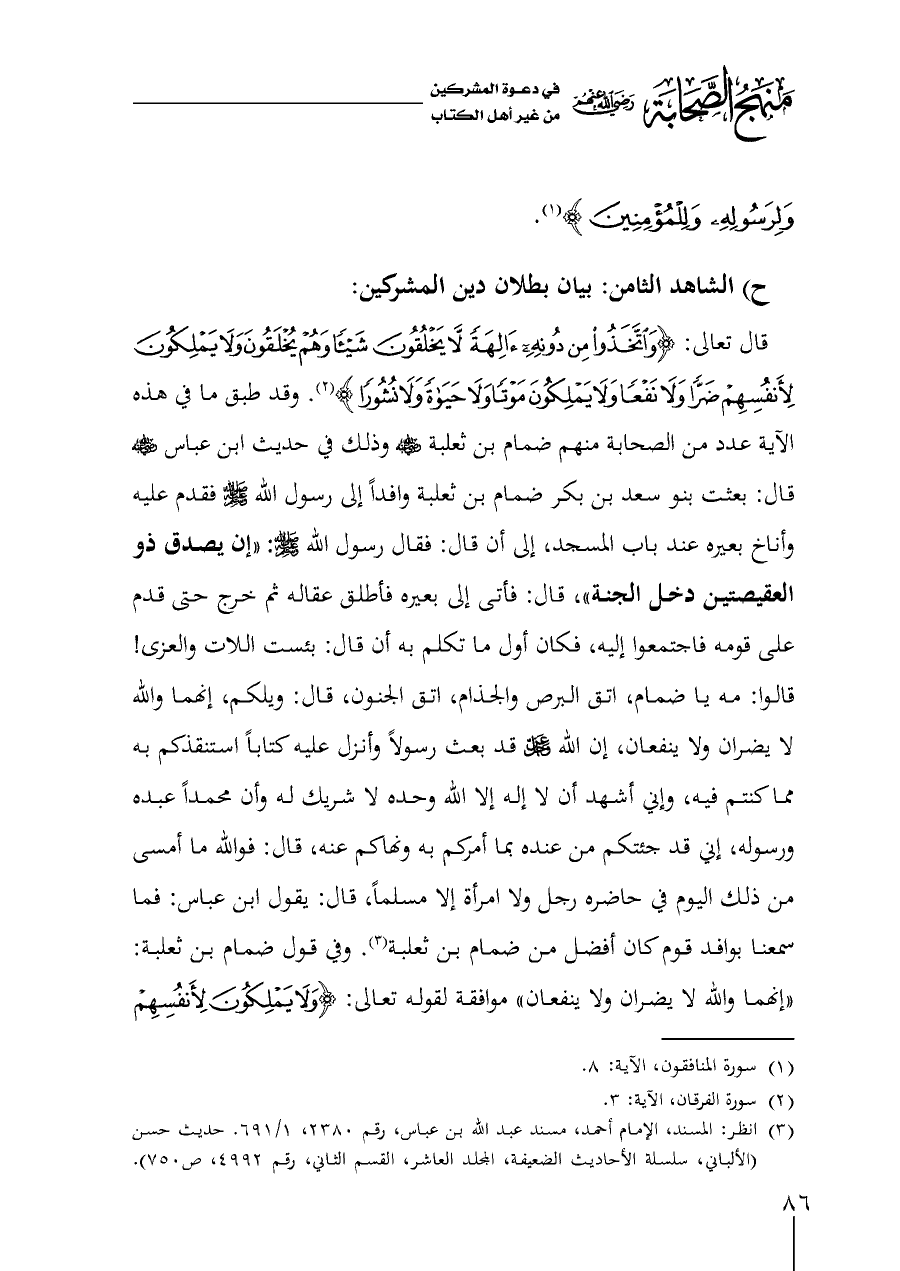 منهج الصحابة رضي الله عنهم في دعوة المشركين
من غير أهل الكتاب
وَلِرَسُولِهِۦ وَلِلْمُؤْمِنِينَ ﴾(١).
ح) الشاهد الثامن: بيان بطلان دين المشركين:
قال تعالى: ﴿وَٱتَّخَذُواْ مِن دُونِهِۦٓ ءَالِهَةً لَّا يَخْلُقُونَ شَيْـًٔا وَهُمْ يُخْلَقُونَ وَلَا يَمْلِكُونَ
لِأَنفُسِهِمْ ضَرًّا وَلَا نَفْعًا وَلَا يَمْلِكُونَ مَوْتًا وَلَا حَيَوٰةً وَلَا نُشُورًا ﴾(٢). وقد طبق ما في هذه
الآية عدد من الصحابة منهم ضمام بن ثعلبة ﷺ وذلك في حديث ابن عباس
قال: بعثت بنو سعد بن بكر ضمام بن ثعلبة وافداً إلى رسول الله ﷺ فقدم عليه
وأناخ بعيره عند باب المسجد، إلى أن قال: فقال رسول الله ﷺ: «إن يصدق ذو
العقيصتين دخل الجنة»، قال: فأتى إلى بعيره فأطلق عقاله ثم خرج حتى قدم
على قومه فاجتمعوا إليه، فكان أول ما تكلم به أن قال: بئست اللات والعزى!
قالوا: مه يا ضمام، اتق البرص والجذام، اتق الجنون، قال: ويلكم، إنهما والله
لا يضران ولا ينفعان، إن الله ﷻ قد بعث رسولاً وأنزل عليه كتاباً استنقذكم به
مما كنتم فيه، وإني أشهد أن لا إله إلا الله وحده لا شريك له وأن محمداً عبده
ورسوله، إني قد جئتكم من عنده بما أمركم به ونهاكم عنه، قال: فوالله ما أمسى
من ذلك اليوم في حاضره رجل ولا امرأة إلا مسلماً، قال: يقول ابن عباس: فما
سمعنا بوافد قوم كان أفضل من ضمام بن ثعلبة(٣). وفي قول ضمام بن ثعلبة:
«إنهما والله لا يضران ولا ينفعان» موافقة لقوله تعالى: ﴿وَلَا يَمْلِكُونَ لِأَنفُسِهِمْ
(١) سورة المنافقون، الآية: ٨.
(٢) سورة الفرقان، الآية: ٣.
(٣) انظر: المسند، الإمام أحمد، مسند عبد الله بن عباس، رقم ٢٣٨٠، ٦٩١/١. حديث حسن
(الألباني، سلسلة الأحاديث الضعيفة، المجلد العاشر، القسم الثاني، رقم ٤٩٩٢، ص٧٥٠).
٨٦